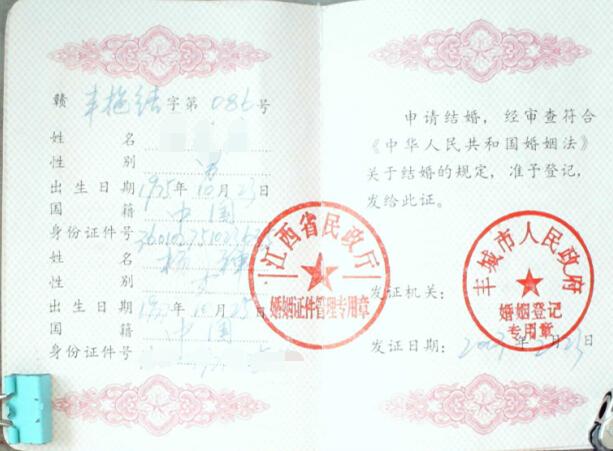 赣丰拖结字第086号
姓名
性别 男
出生日期1975年10月23日
国籍 中国
身份证件号
姓名 杨
性别 女
出生日期 年10月25日
国籍 中国
身份证件号
江西省民政厅
婚姻证件管理专用章
申请结婚，经审查符合
《中华人民共和国婚姻法》
关于结婚的规定，准予登记，
发给此证。
发证机关：
丰城市人民政府
婚姻登记
专用章
发证日期： 年 月23日